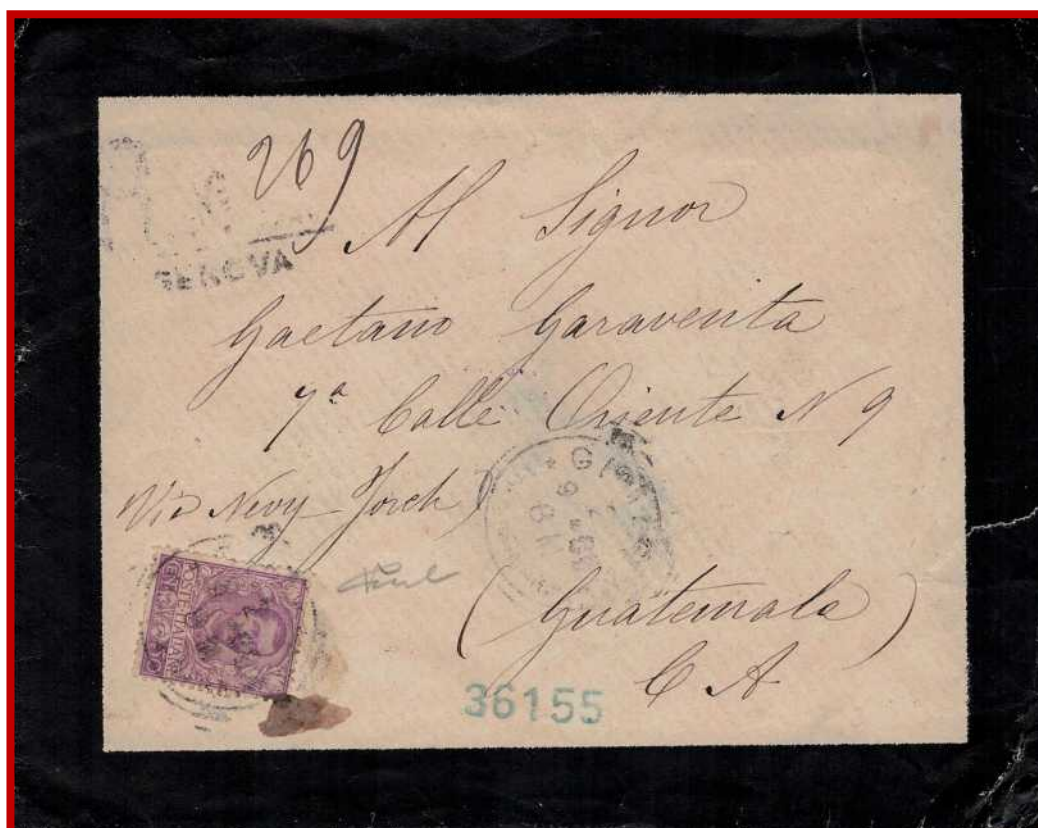 269
GENOVA
Al Signor
Gaetano Garaventa
7ª Calle Oriente N 9
Via Nevy Jorch
(Guatemala)
C A
36155
POSTE ITALIANE
CENT. 50